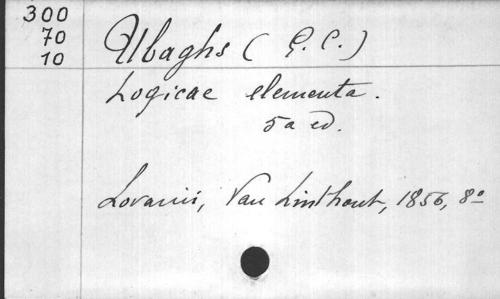 300
70
10
Ubaghs (G. C.)
Logicae elementa.
5a ed.
Lovanii, Van Linthout, 1856, 8º